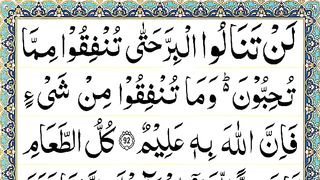 لَنْ تَنَالُوا الْبِرَّ حَتّٰى تُنْفِقُوْا مِمَّا
تُحِبُّوْنَ ؕ وَمَا تُنْفِقُوْا مِنْ شَیْءٍ
فَاِنَّ اللّٰهَ بِهٖ عَلِیْمٌ ﴿92﴾ كُلُّ الطَّعَامِ